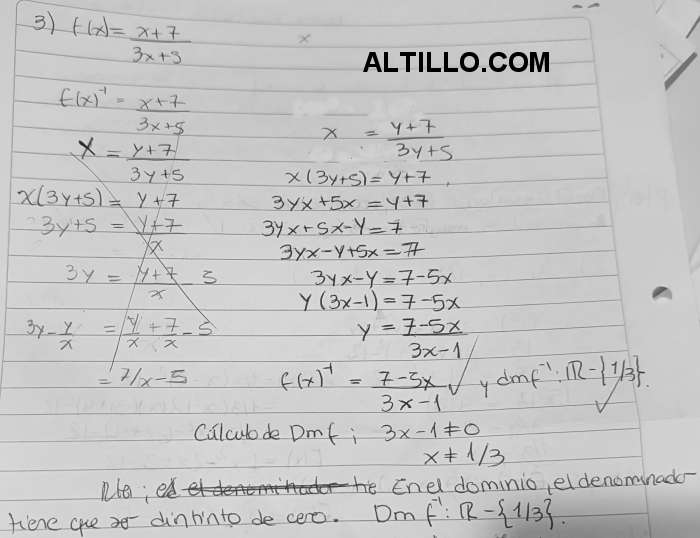 3) f(x)= x+7 / 3x+3
ALTILLO.COM
f(x)⁻¹ = x+7 / 3x+5
x = y+7 / 3y+5
x(3y+5) = y+7
3y+5 = y+7 / x
3y = y+7 / x - 5
3y - y/x = y/x + 7/x - 5
= 7/x - 5
x = y+7 / 3y+5
x(3y+5) = y+7
3yx+5x = y+7
3yx+5x-y = 7
3yx-y+5x = 7
3yx-y = 7-5x
y(3x-1) = 7-5x
y = 7-5x / 3x-1
f(x)⁻¹ = 7-5x / 3x-1 ✓ y dmf⁻¹: ℝ-{1/3}. ✓
Cálculo de Dmf; 3x-1≠0
x ≠ 1/3
Rta; el denominador En el dominio, el denominador
tiene que ser dintinto de cero. Dm f⁻¹: ℝ-{1/3}.